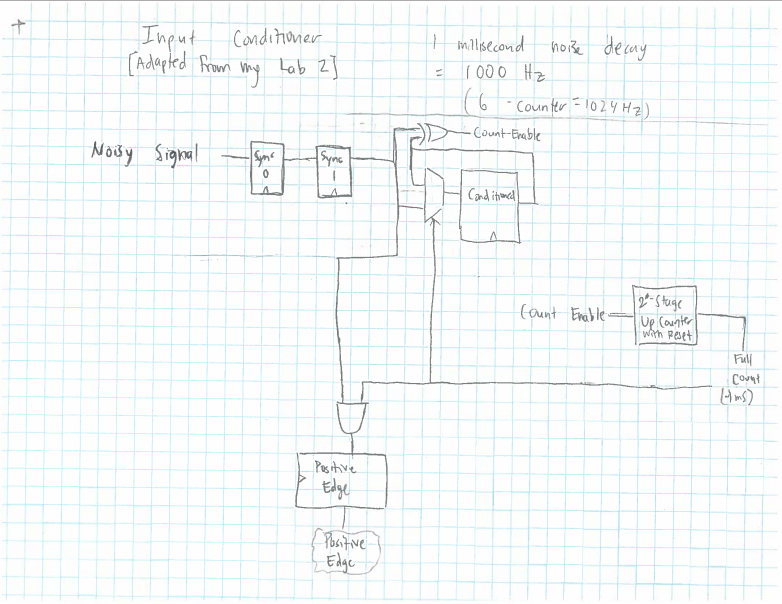 Input Conditioner
[Adapted from my Lab 2]
1 millisecond noise decay
= 1000 Hz
(6 - counter = 1024 Hz)
Count-Enable
Noisy Signal
Sync
0
Sync
1
Conditioned
Count Enable
Stage
Up Counter
with Reset
Full
Count
(~1ms)
Positive
Edge
Positive
Edge